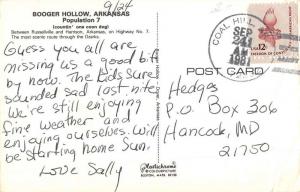 9/24
BOOGER HOLLOW, ARKANSAS
Population 7
(countin' one coon dog)
Between Russellville and Harrison, Arkansas, on Highway No. 7.
The most scenic route through the Ozarks.
Guess you all are
missing us a good bit
by now. The kids sure
sounded sad last nite.
We're still enjoying
fine weather and
enjoying ourselves. Will
be starting home Sun.
Love Sally
COAL HILL
SEP
24
AM
1981
USA 12c
FREEDOM OF CONSCIENCE
POST CARD
Hedges
P.O. Box 306
Hancock, MD
21750
Plastichrome
COLOURPICTURE
BOSTON, MASS. 02130